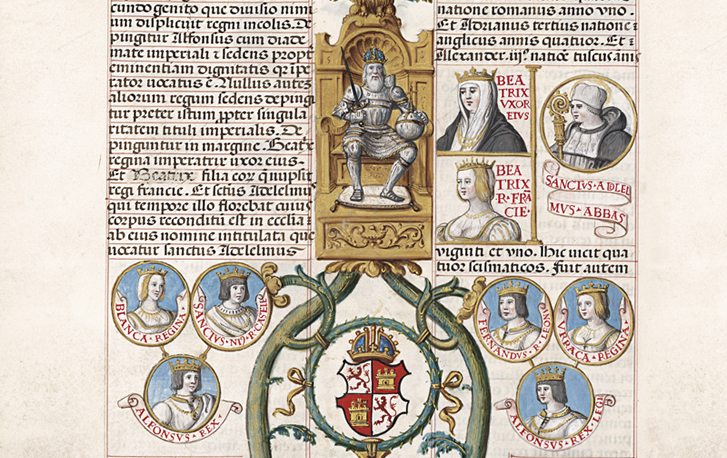 cundo genito quo divisio nimi
um displicuit regni incolis. De
pingitur Alfonsus cum diade
mate imperiali ⁊ sedens propt
eminentiam dignitatis q̃ ĩpe
rator vocatus ẽ. Nullus autez
aliorum regum sedens depingi
tur preter istum, ꝓpter singula
ritatem tituli imperialis. De
pinguntur in margine. Beatrix
regina imperatrix uxor eius.
Et Beatrix filia eor̃ q̃ nupsit
regi francie. Et sctus Adelelmus
qui tempore illo florebat cuius
corpus reconditũ est in ecclesia
ab eius nomine intitulata que
vocatur sanctus Adelelmus
natione romanus anno vno.
Et Adrianus tertius natione
anglicus annis quatuor. Et
Alexander .iijˢ. natiõe tuscus anis
BEA
TRIX VXOR
EIVS
BEA
TRIX
R·FRA
CIE·
SANCIVS·ADLEL
MVS·ABBAS
viginti et vno. Hic vicit qua
tuor scismaticos. Fuit autem
BLANCA·REGINA·
SANCIVS·
ALFONSVS·REX·
FERNANDVS·R·LEGION·
VRRACA·REGINA·
ALFONSVS·REX·LEGI